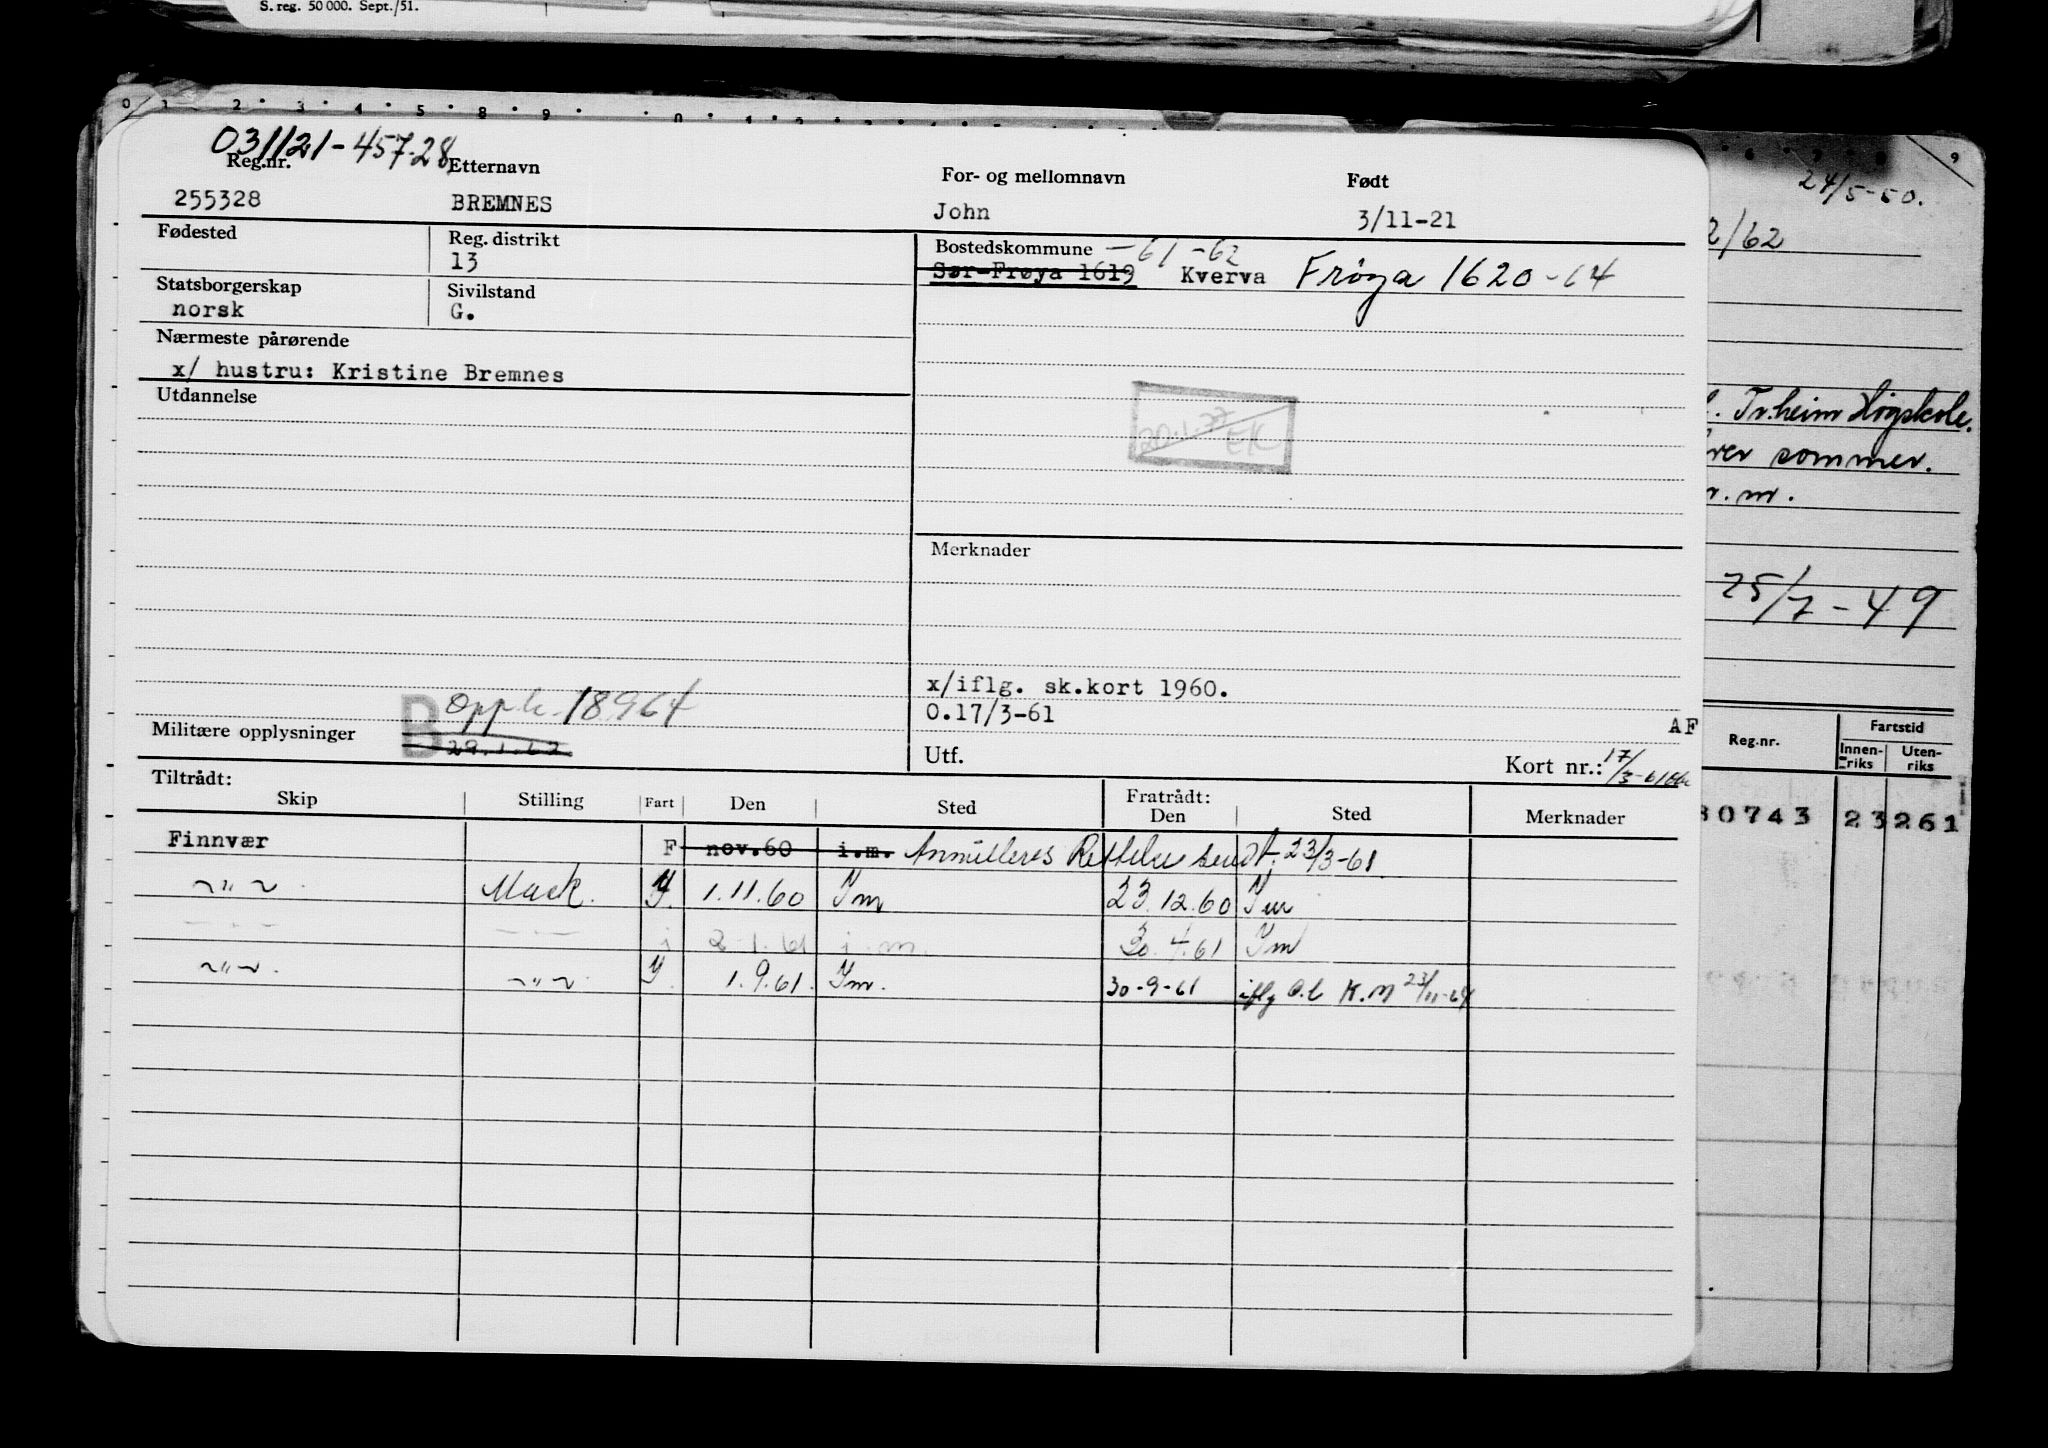 S. reg. 50 000. Sept./51.
031121-457.28
Reg.nr. Etternavn For- og mellomnavn Født
255328 BREMNES John 3/11-21
Fødested Reg. distrikt Bostedskommune -61 -62
13 Sør-Frøya 1619 Kverva Frøya 1620-64
Statsborgerskap Sivilstand
norsk G.
Nærmeste pårørende
x/ hustru: Kristine Bremnes
Utdannelse
20.1.77 EK
Merknader
x/iflg. sk.kort 1960.
O.17/3-61
AF
B Oppb. 18964
Militære opplysninger 29.1.62
Utf. Kort nr.: 17/3-61
Tiltrådt: Fratrådt:
Skip Stilling Fart Den Sted Den Sted Merknader
Finnvær F nov.60 i.m. Annulleres Rettelse sendt 23/3-61
~"~ Mask. Y. 1.11.60 Im 23.12.60 Im
- - - - - - i 2.1.61 i.m. 30.4.61 Im
~"~ ~"~ Y. 1.9.61. Im. 30-9-61 iflg O.b K.M 23/11-64
24/5-50.
2/62
Tr.heim Högskole.
sommer.
25/7-49
Reg.nr. Fartstid
Innenriks Utenriks
80743 23 261